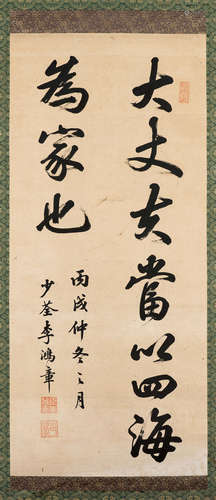 大丈夫當以四海
為家也
丙戌仲冬之月
少荃李鴻章